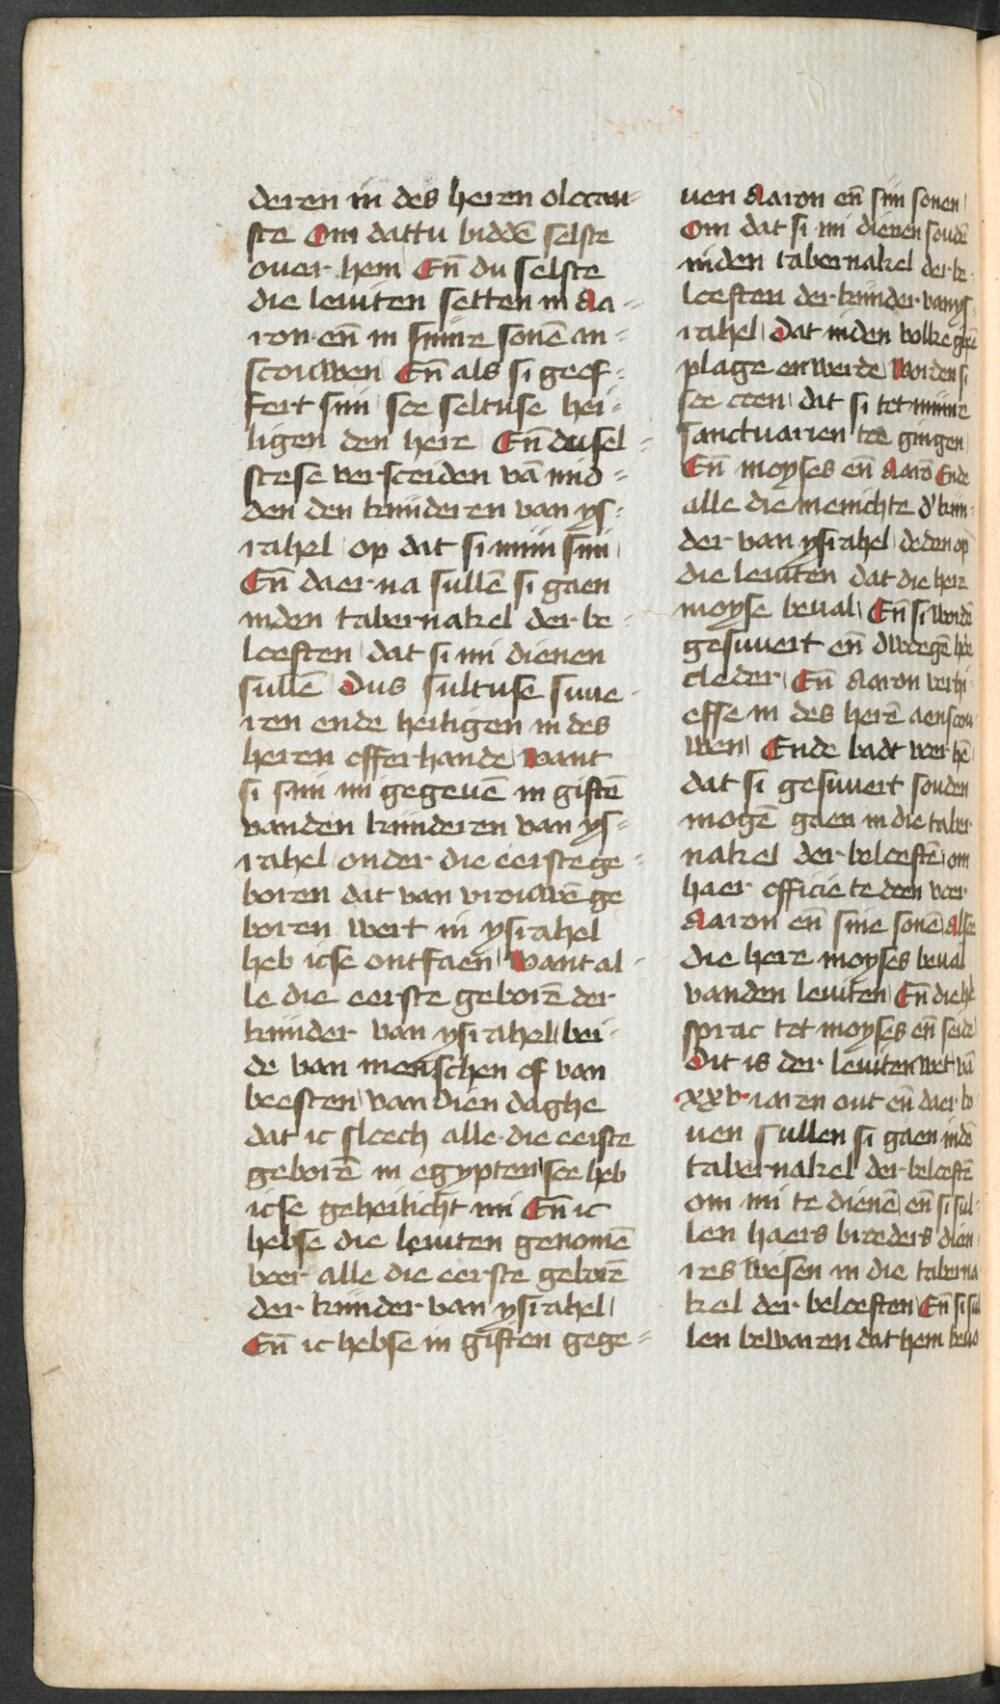 deren in des heren olocau-
ste Om dattu biddē selste
ouer hem Eñ du selste
die leuiten setten in Aa-
ron eñ in sijnre sonē an-
scouwen Eñ als si geof-
fert sijn soe seltuse hei-
ligen den here Eñ du sel-
stese versceiden vā mid-
den den kinderen van ys-
rahel op dat si mijn sijn
Eñ daer na sullē si gaen
inden tabernakel der be-
loeften dat si mi dienen
sullē Dus sultuse suue-
ren ende heiligen in des
heren offerhande want
si sijn mi gegeuē in giftē
vanden kinderen van ys-
rahel onder die eerste ge-
boren dat van vrouwē ge
boren wert in ysrahel
heb icse ontfaen want al-
le die eerste geborē der
kinder van ysrahel bei-
de van menschen of van
beesten van dien daghe
dat ic sloech alle die eerste
geborē in egypten soe heb
icse geheilicht mi Eñ ic
hebse die leuiten genomē
voer alle die eerste geborē
der kinder van ysrahel
Eñ ic hebse in giften gege-
uen Aaron eñ sijn sonen
Om dat si mi dienen soudē
inden tabernakel der be-
loeften der kinder van ys-
rahel Dat inden volke geē
plage en werde worden si
soe coen dat si tot mijnre
sanctuarien toe gingen
Eñ moyses eñ Aarō Ende
alle die menichte d' kin-
der van ysrahel deden op
die leuiten dat die here
moyse beual Eñ si wordē
gesuuert eñ dwoegē hoe
cleder Eñ Aaron verhi-
effe in des herē aenscou-
wen Ende badt voer hē
dat si gesuuert souden
mogē gaen in die taber-
nakel der beloeftē om
haer officie te doen voer
Aaron eñ sine sonē Alse
die here moyses beual
vanden leuiten Eñ die he
sprac tot moyses eñ seide
Dit is der leuiten wet vā
xxv iaren out eñ daer bo
uen sullen si gaen indē
tabernakel der beloeftē
om mi te dienē eñ si sul-
len haers broeders dien-
res wesen in die taberna
kel der beloeften Eñ si sul
len bewaren dat hem beuo